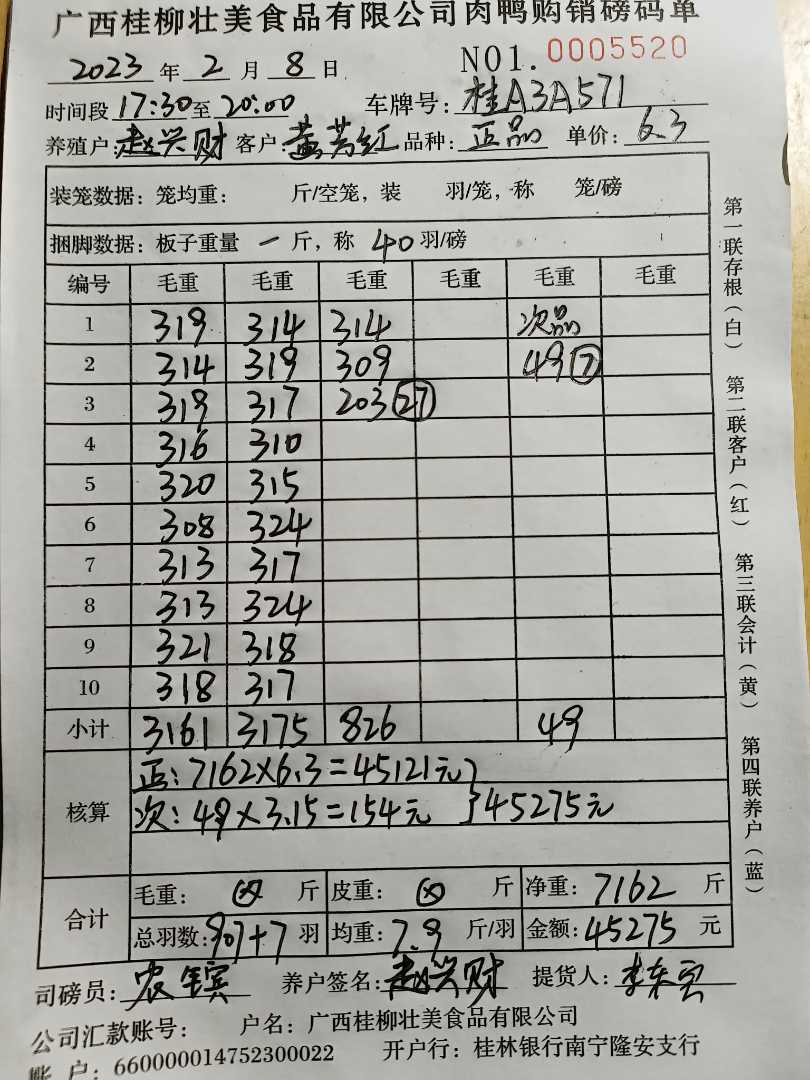 广西桂柳壮美食品有限公司肉鸭购销磅码单
2023 年 2 月 8 日 NO1. 0005520
时间段 17:30 至 20:00 车牌号: 桂A3A571
养殖户: 赵兴财 客户: 黄芳红 品种: 正品 单价: 6.3
装笼数据: 笼均重: 斤/空笼, 装 羽/笼, 称 笼/磅
捆脚数据: 板子重量 一 斤, 称 40 羽/磅
编号 毛重 毛重 毛重 毛重 毛重 毛重
1 319 314 314 次品
2 314 319 309 49 ⑦
3 319 317 203 ㉗
4 316 310
5 320 315
6 308 324
7 313 317
8 313 324
9 321 318
10 318 317
小计 3161 3175 826 49
核算
正: 7162×6.3=45121元
次: 49×3.15=154元 }45275元
合计
毛重: 斤 皮重: 斤 净重: 7162 斤
总羽数: 907+7 羽 均重: 7.9 斤/羽 金额: 45275 元
司磅员: 农 养户签名: 赵兴财 提货人: 李东
公司汇款账号: 户名: 广西桂柳壮美食品有限公司
账 户: 660000014752300022 开户行: 桂林银行南宁隆安支行
第一联存根(白) 第二联客户(红) 第三联会计(黄) 第四联养户(蓝)